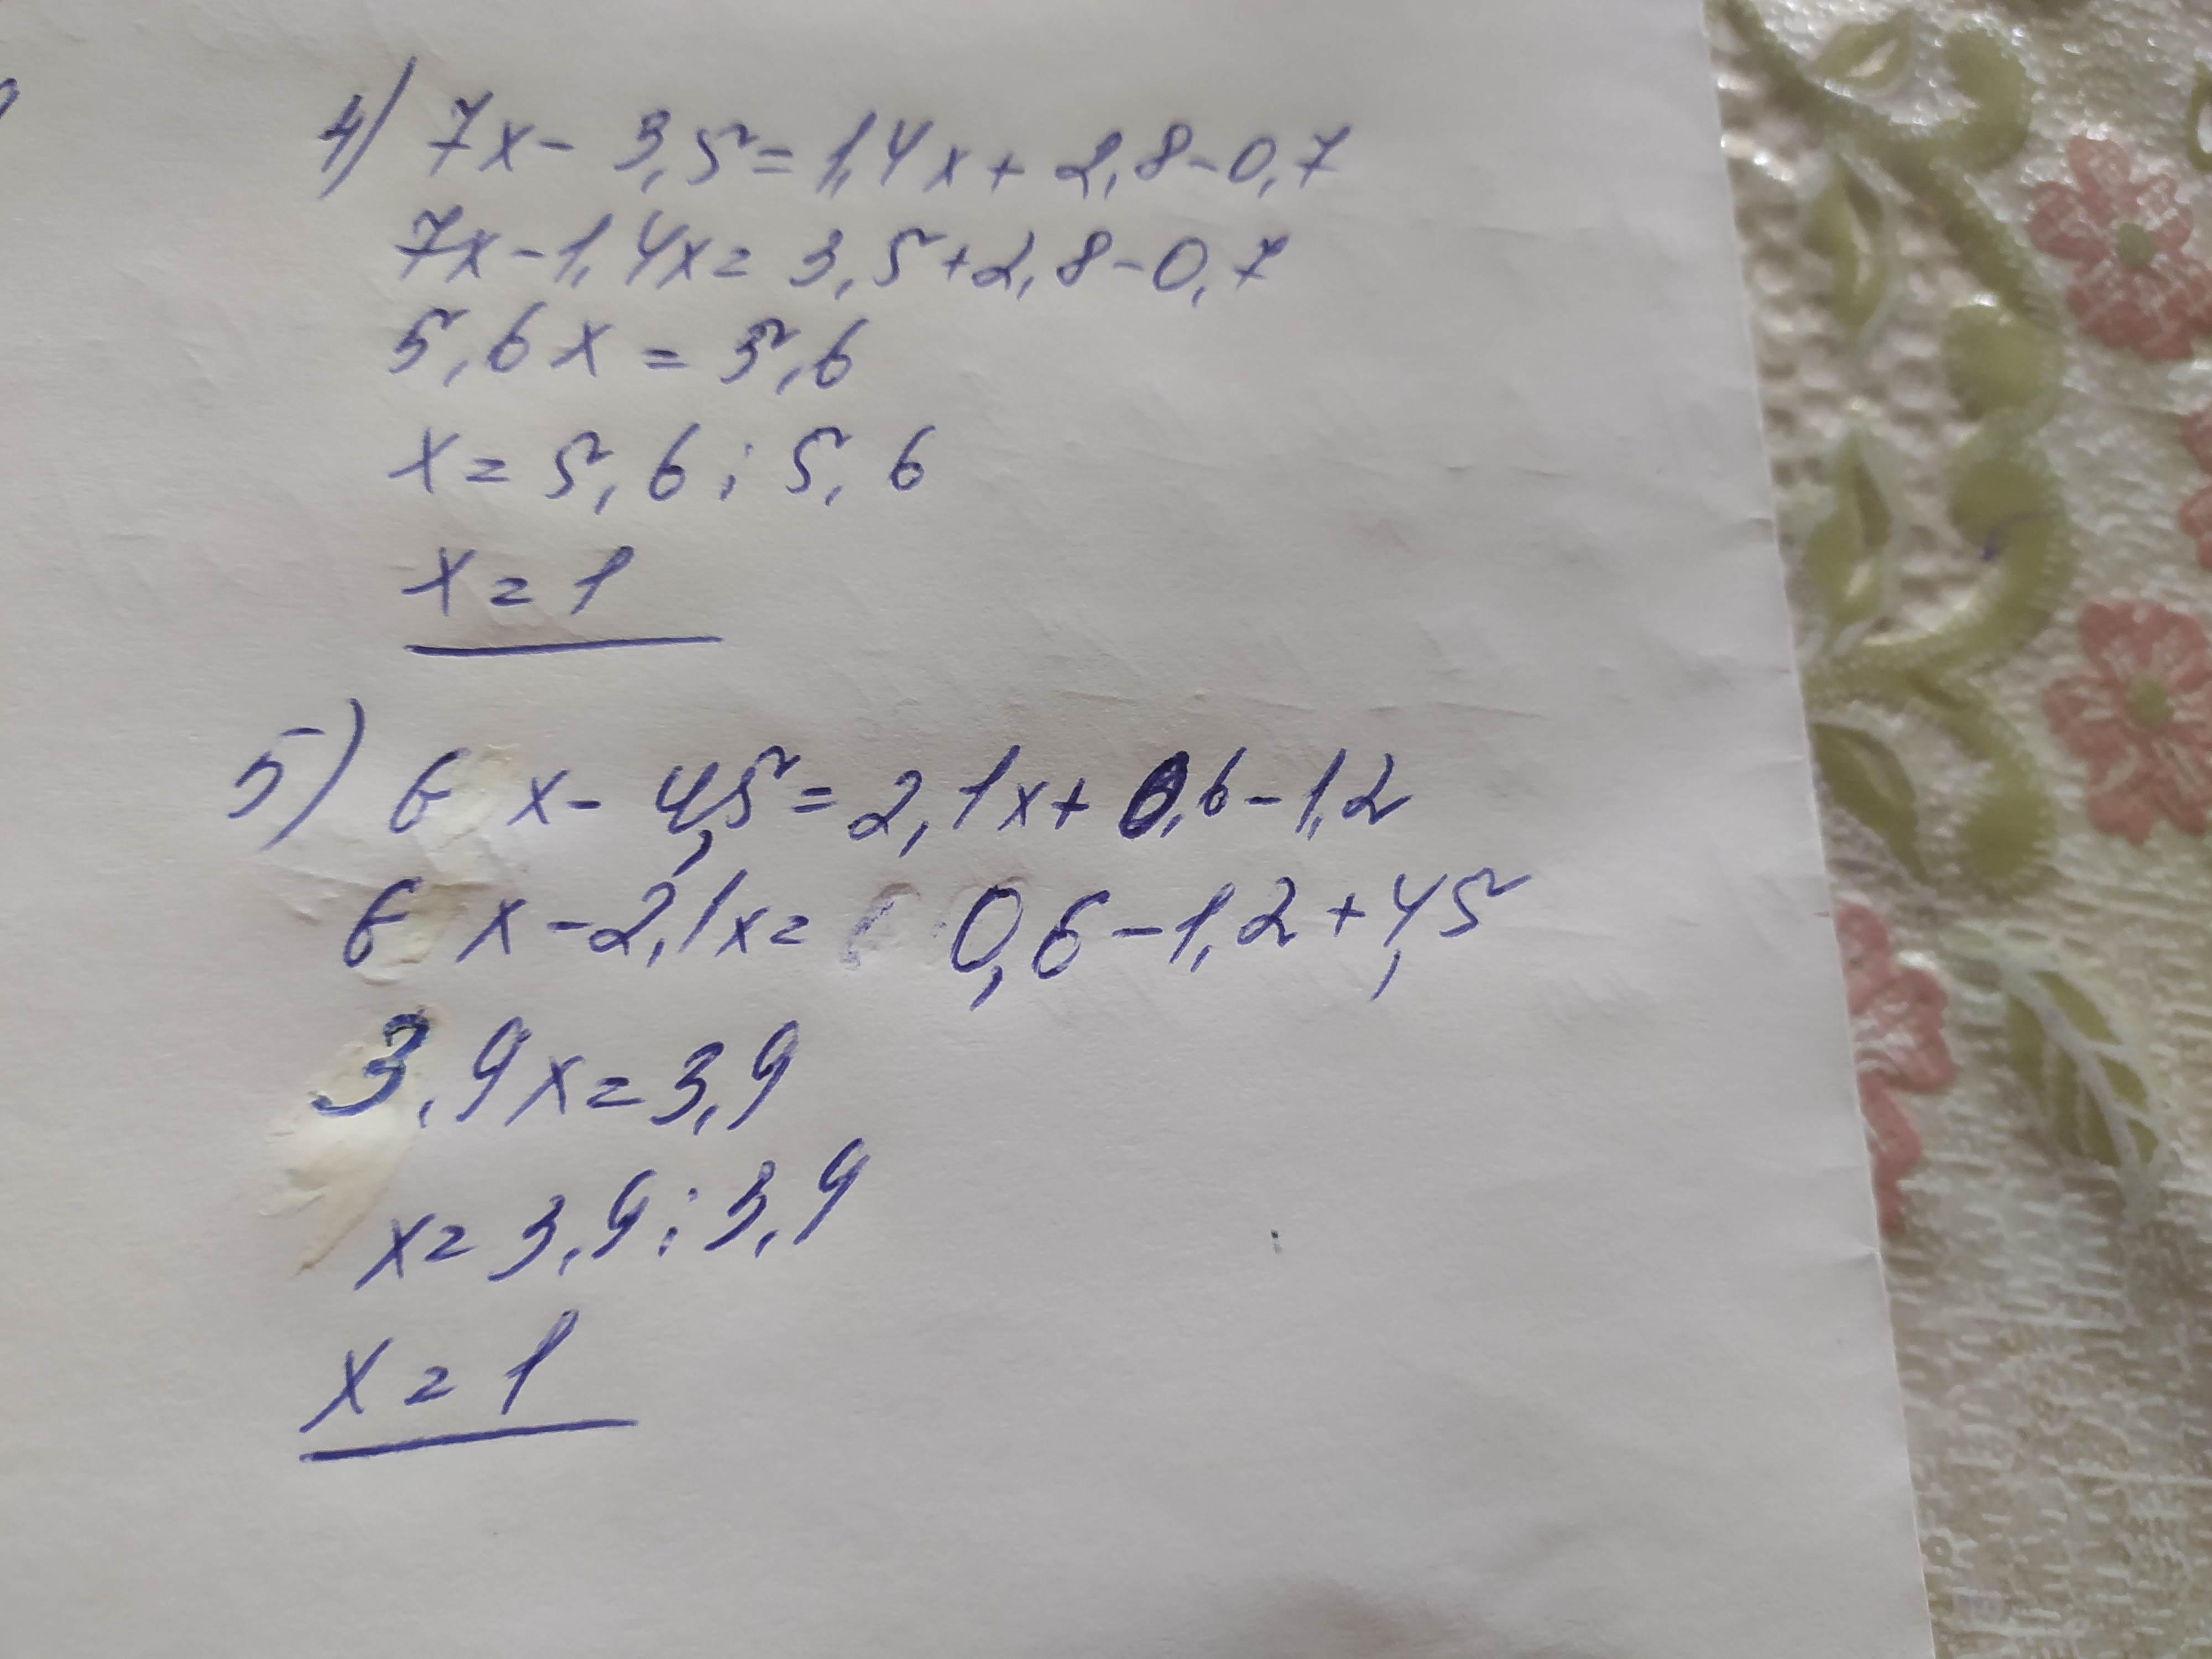 4) 7x - 3,5 = 1,4x + 2,8 - 0,7
7x - 1,4x = 3,5 + 2,8 - 0,7
5,6x = 5,6
x = 5,6 : 5,6
x = 1
5) 6 x - 4,5 = 2,1x + 0,6 - 1,2
6 x - 2,1x = 0,6 - 1,2 + 4,5
3,9x = 3,9
x = 3,9 : 3,9
x = 1